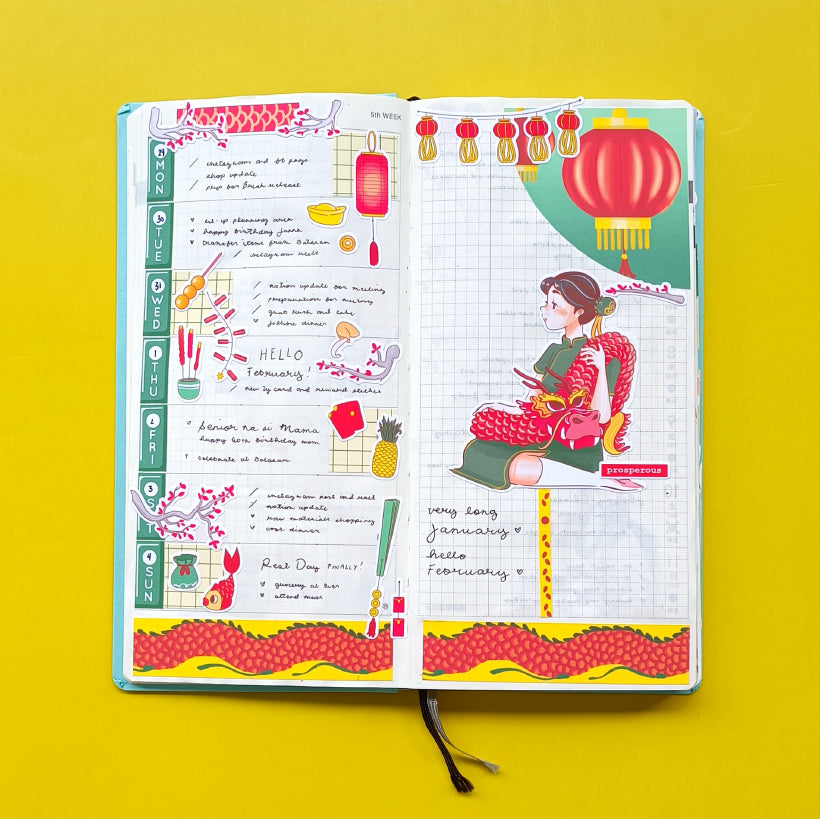 5th WEEK
29 MON
instagram and fb page
shop update
prep for fresh release
30 TUE
set-up planning area
happy birthday Janna
transfer some from Balasan
instagram reels
31 WED
notion update for meeting
preparation for meeting
grab lunch and cake
jollibee dinner
1 THU
HELLO
February!
new ty card and reward sticker
2 FRI
Senior na si Mama
happy 60th birthday mom
celebrate at Balasan
3 SAT
instagram post and reel
notion update
raw materials shopping
cook dinner
4 SUN
Rest Day FINALLY!
grocery at Ever
attend mass
prosperous
very long
January
hello
February